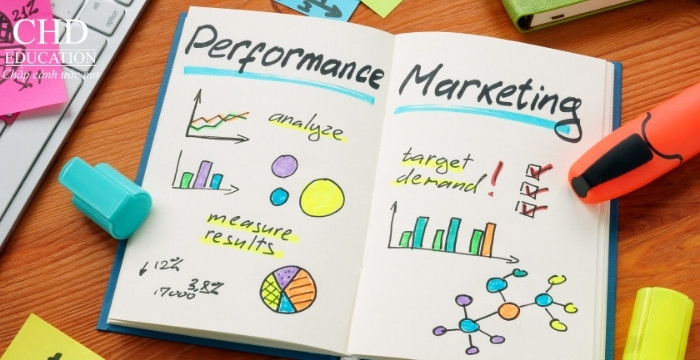 CHD
EDUCATION
Chắp cánh ước mơ
21%
Performance
analyze
measure
results
12%
17000
3,8%
Marketing
target
demand!